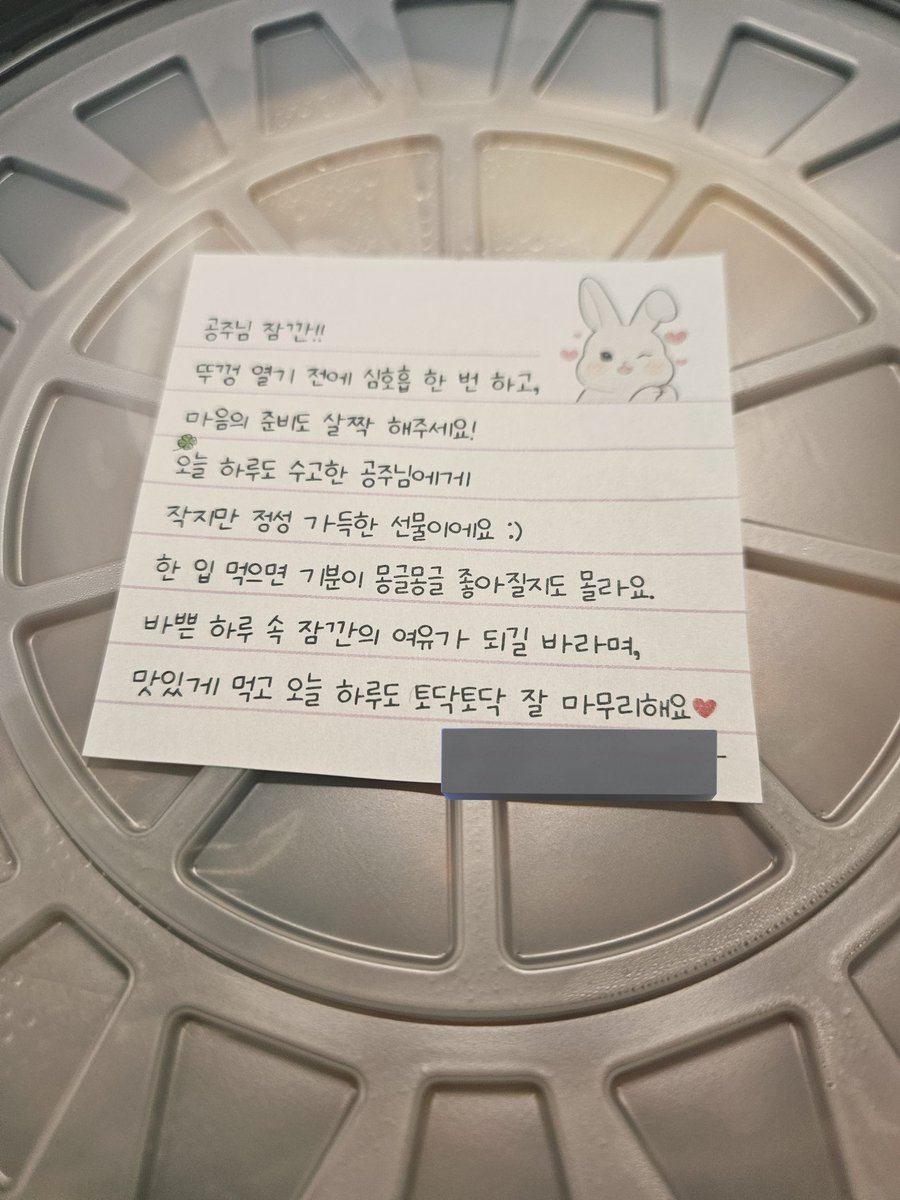 공주님 잠깐!!
뚜껑 열기 전에 심호흡 한 번 하고,
마음의 준비도 살짝 해주세요!
오늘 하루도 수고한 공주님에게
작지만 정성 가득한 선물이에요 :)
한 입 먹으면 기분이 몽글몽글 좋아질지도 몰라요.
바쁜 하루 속 잠깐의 여유가 되길 바라며,
맛있게 먹고 오늘 하루도 토닥토닥 잘 마무리해요❤️